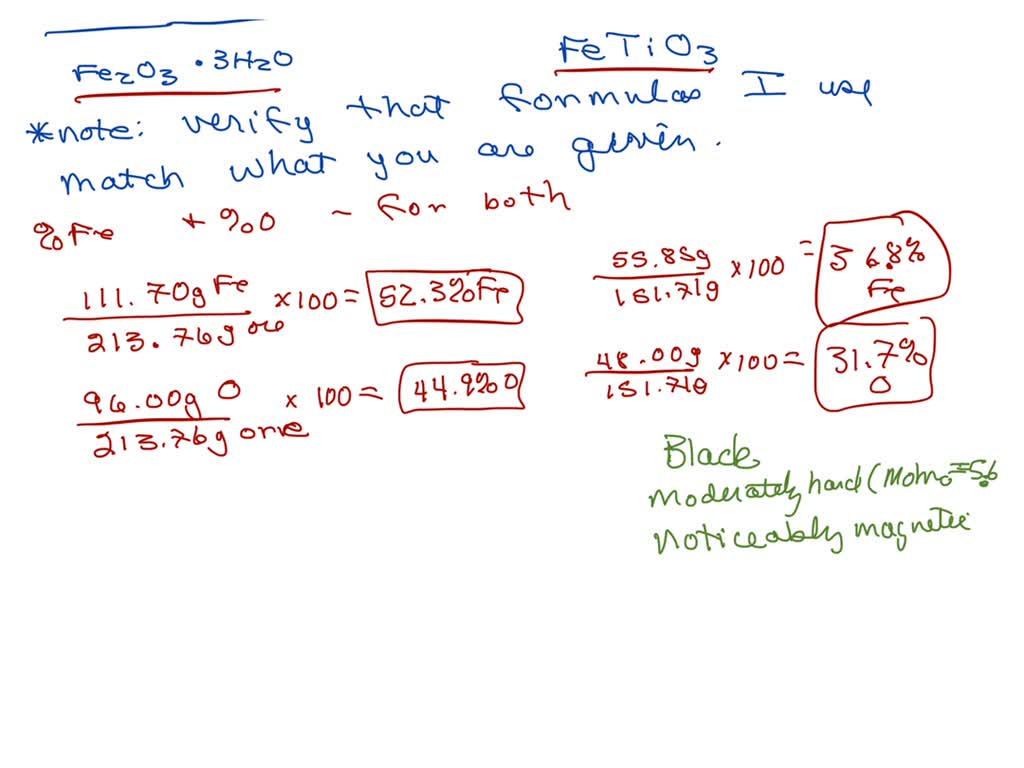 Fe2O3 · 3H2O
FeTiO3
*note: verify that formulas I use
match what you are given.
%Fe + %O ~ for both
111.70g Fe
213.76g ore
×100 = 52.3% Fe
96.00g O
213.76g ore
× 100 = 44.9% O
55.85g
151.71g
×100 = 36.8%
Fe
48.00g
151.71g
×100 = 31.7%
O
Black
moderately hard (Mohs = 5.6
noticeably magnetic